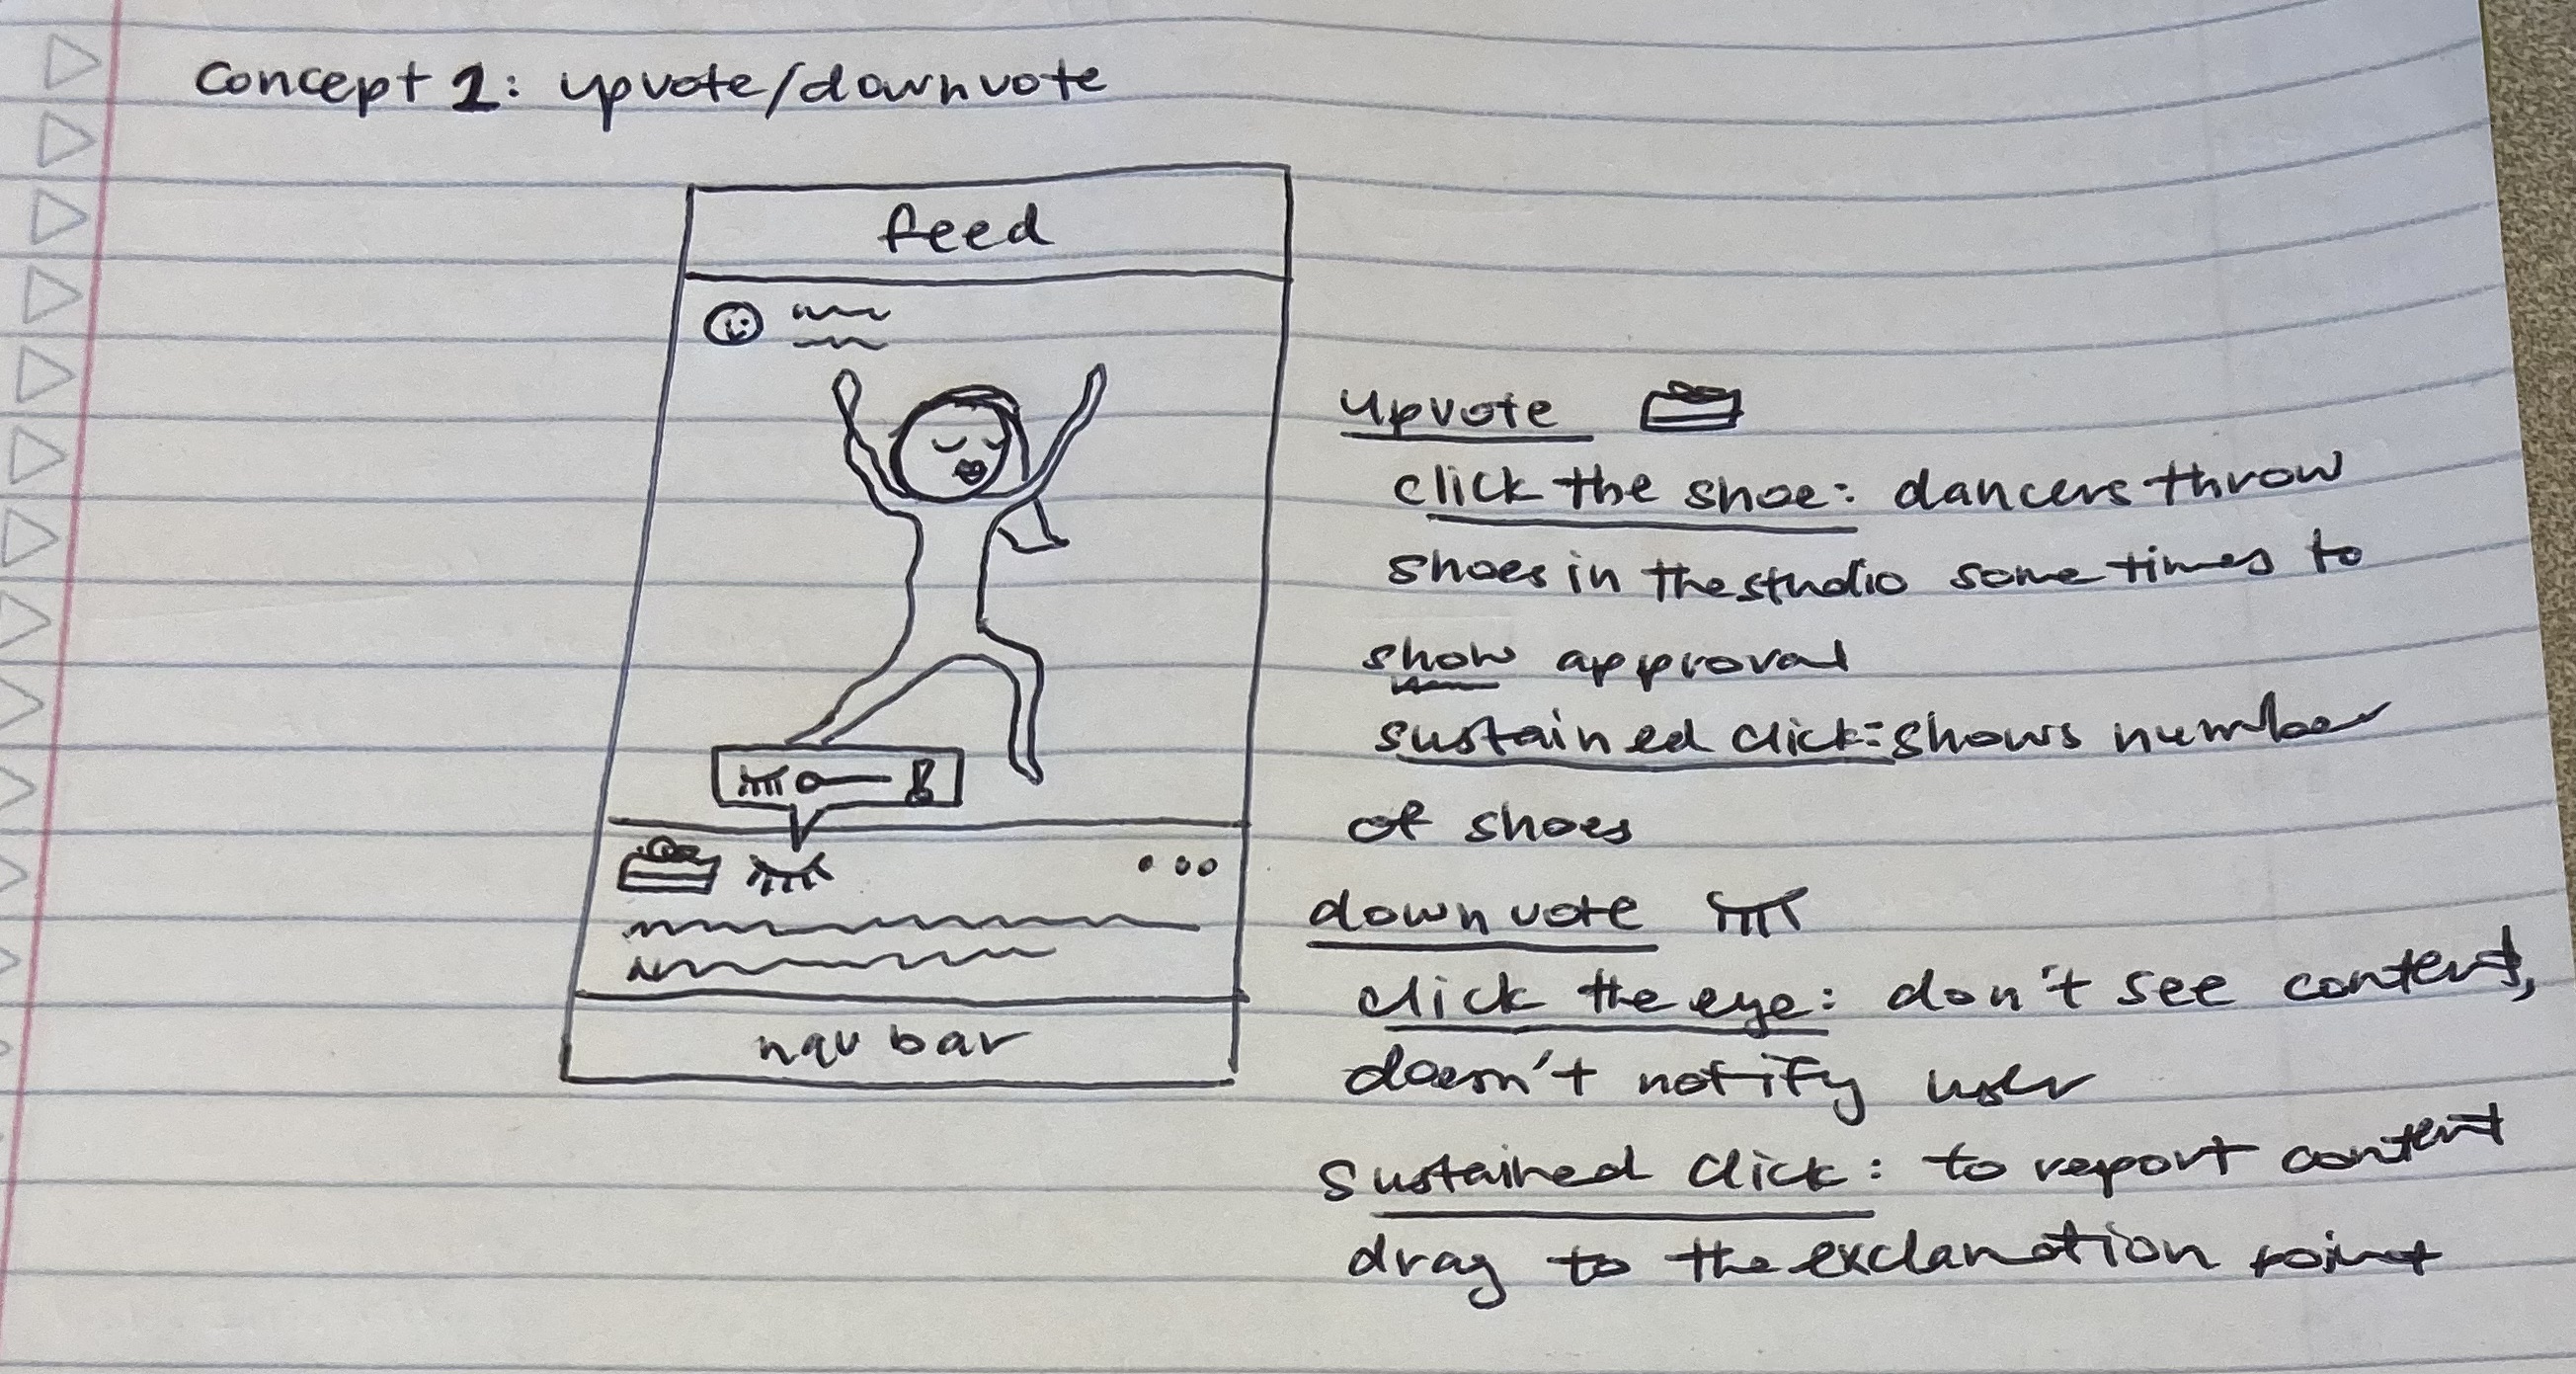 Concept 1: upvote/downvote
feed
upvote
click the shoe: dancers throw
shoes in the studio sometimes to
show approval
sustained click: shows number
of shoes
downvote
click the eye: don't see content,
doesn't notify user
sustained click: to report content
drag to the exclamation point
nav bar